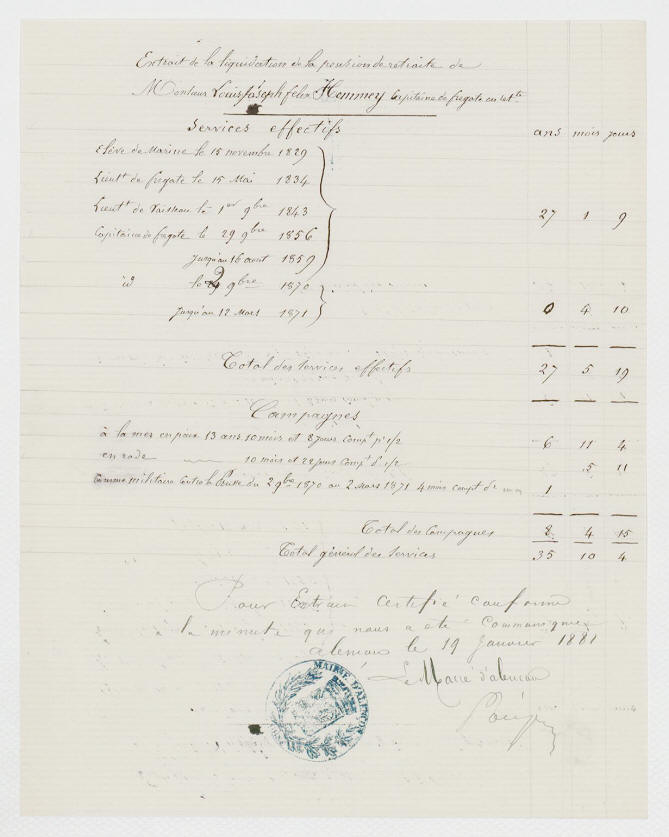 Extrait de la liquidation de la pension de retraite de
Monsieur Louis Joseph felix Hommey Capitaine de fregate en rte
Services effectifs ans mois jours
Elève de Marine le 15 novembre 1829
Lieutt de fregate le 15 Mai 1834
Lieutt de Vaisseau le 1er 9bre 1843 27 1 9
Capitaine de fregate le 29 9bre 1856
Jusqu'au 16 aout 1859
id le 2 9bre 1870
Jusqu'au 12 Mars 1871 0 4 10
Total des services effectifs 27 5 19
Campagnes
à la mer en paix 13 ans 10 mois et 8 jours compt pr 1/2 6 11 4
en rade 10 mois et 22 jours compt pr 1/2 5 11
Comme militaire contre la Prusse du 2 9bre 1870 au 2 Mars 1871 4 mois compt 1
Total des Campagnes 8 4 15
Total général des services 35 10 4
Pour Extrait Certifié conforme
à la minute qui nous a été Communiquée
alencon le 19 Janvier 1881
Le Maire d'alencon
MAIRIE D'ALENÇON